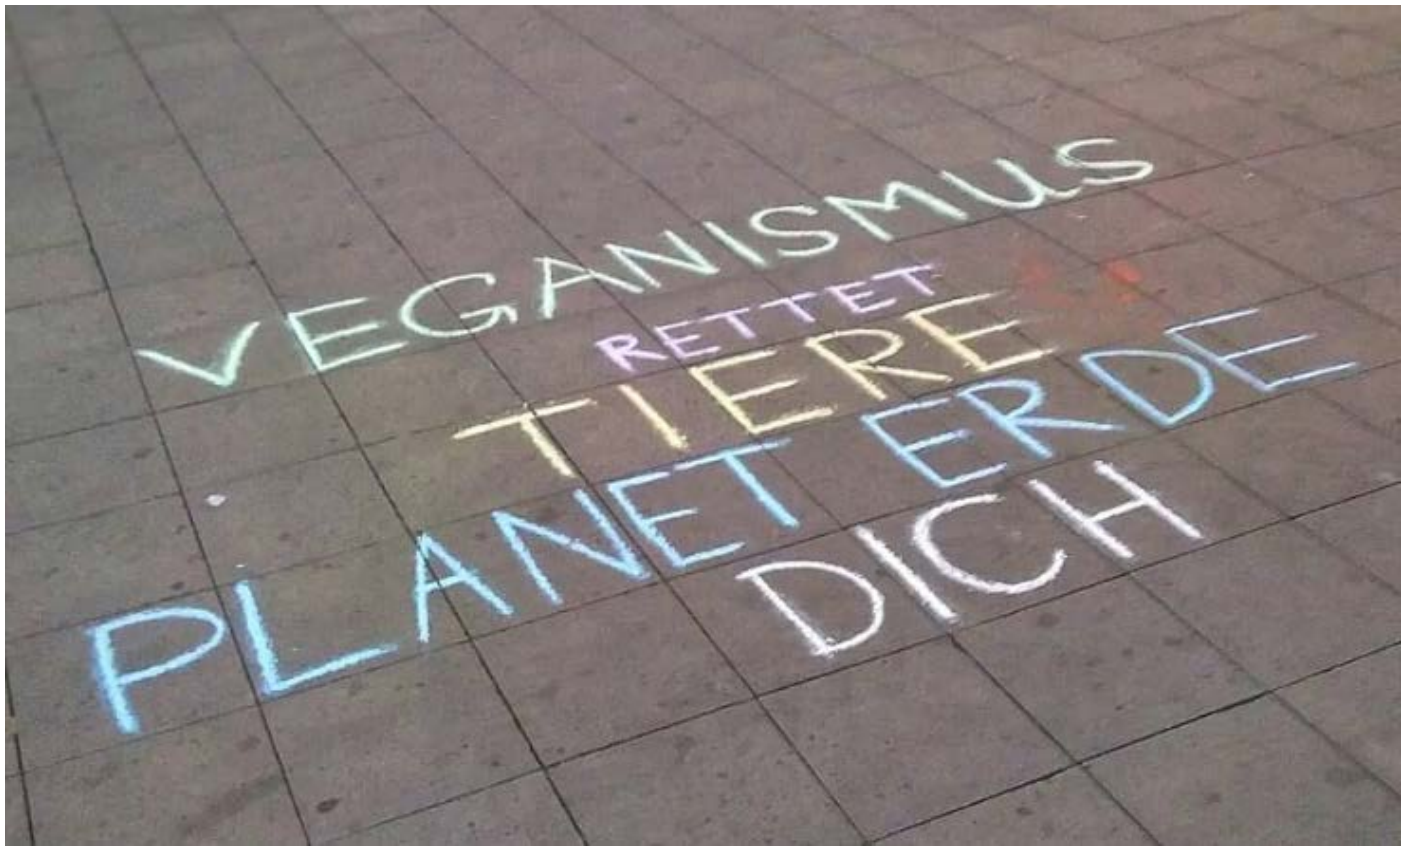 VEGANISMUS
RETTET
TIERE
PLANET ERDE
DICH